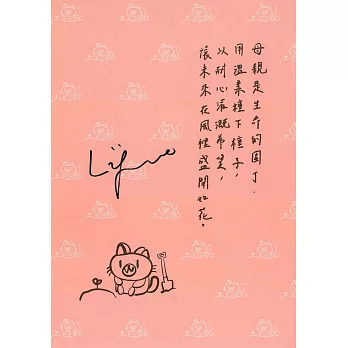 母親是生命的園丁.
用溫柔種下種子,
以耐心灌溉希望,
讓未來在風裡盛開如花。